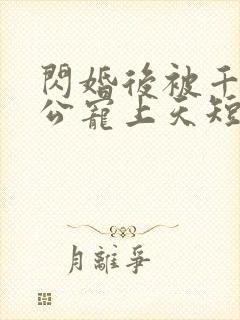 閃婚後被千
公寵上天短
月離爭